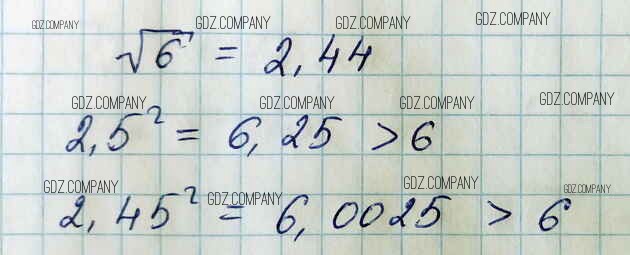 GDZ.COMPANY GDZ.COMPANY GDZ.COMPANY GDZ.COMPANY
√6 = 2,44
GDZ.COMPANY GDZ.COMPANY GDZ.COMPANY GDZ.COMPANY
2,5² = 6,25 > 6
GDZ.COMPANY GDZ.COMPANY GDZ.COMPANY GDZ.COMPANY
2,45² = 6,0025 > 6